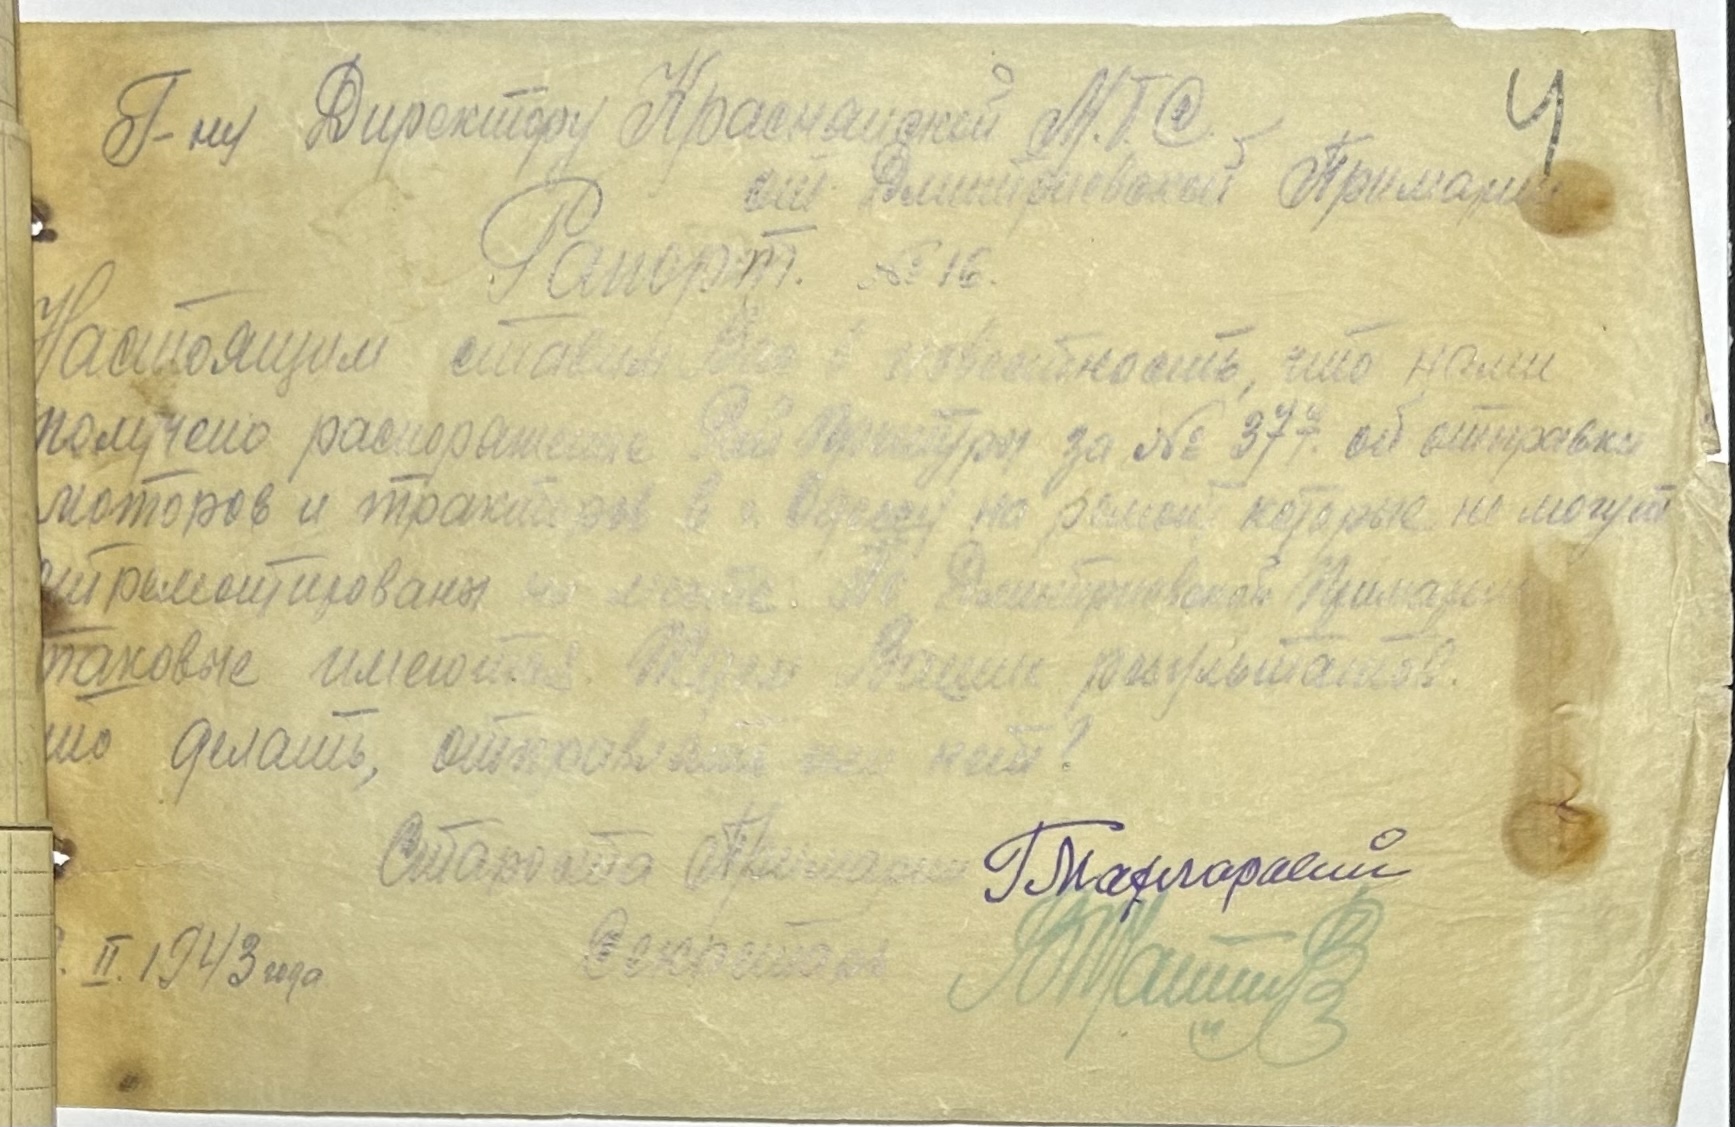 Г-ну Директору Краснанской М.Т.С.
4
от Дмитриевской Примарии
Рапорт. № 16.
Настоящим ставим Вас в известность, что нами
получено распоряжение Рай Претуры за № 377. об отправки
моторов и тракторов в г. Одессу на ремонт которые не могут
отремонтированы на месте. По Дмитриевской Примарии
таковые имеются. Ждем Ваших результатов.
что делать, отправлять или нет?
Староста Примарии
II. 1943 года
Секретарь